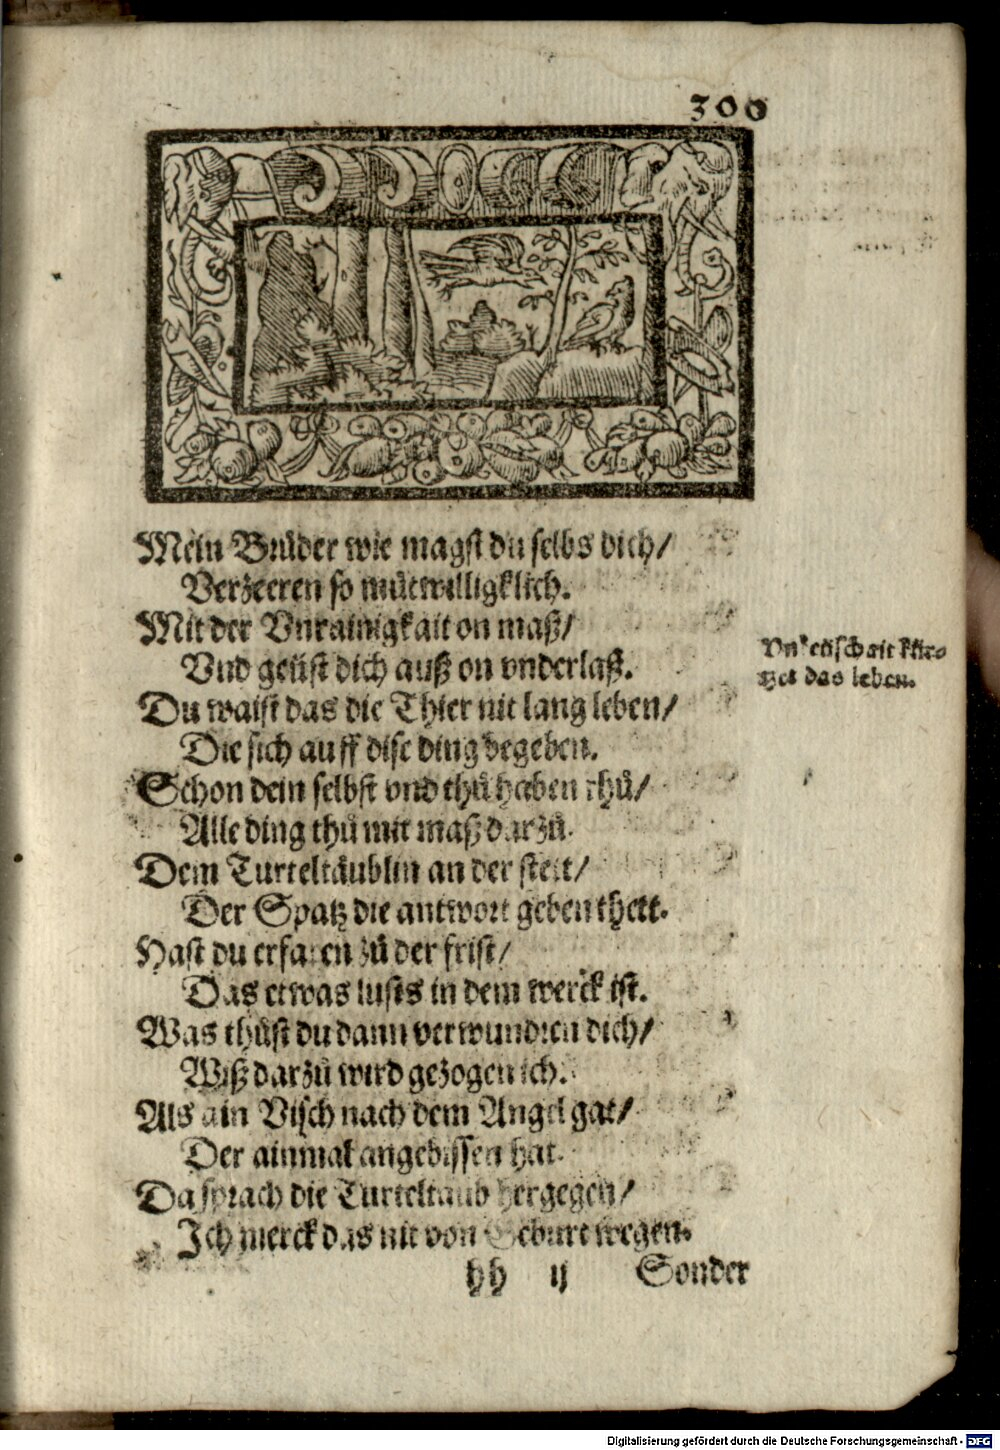 300
Mein Brůder wie magst du selbs dich/
Verzeeren so můtwilligklich.
Mit der Vnrainigkait on maß/
Vnd geüst dich auß on vnderlaß.
Du waist das die Thier nit lang leben/
Die sich auff dise ding begeben.
Schon dein selbst vnd thů haben rhů/
Alle ding thů mit maß darzů.
Dem Turteltäublin an der stett/
Der Spatz die antwort geben thett.
Hast du erfaren zů der frist/
Das etwas lusts in dem werck ist.
Was thůst du dann verwundren dich/
Wiß darzů wird gezogen ich.
Als ain Visch nach dem Angel gat/
Der ainmal angebissen hat.
Da sprach die Turteltaub hergegen/
Ich merck das nit von Geburt wegen.
hh ij Sonder
Vnkeüschait kür-
tzet das leben.
Digitalisierung gefördert durch die Deutsche Forschungsgemeinschaft - DFG